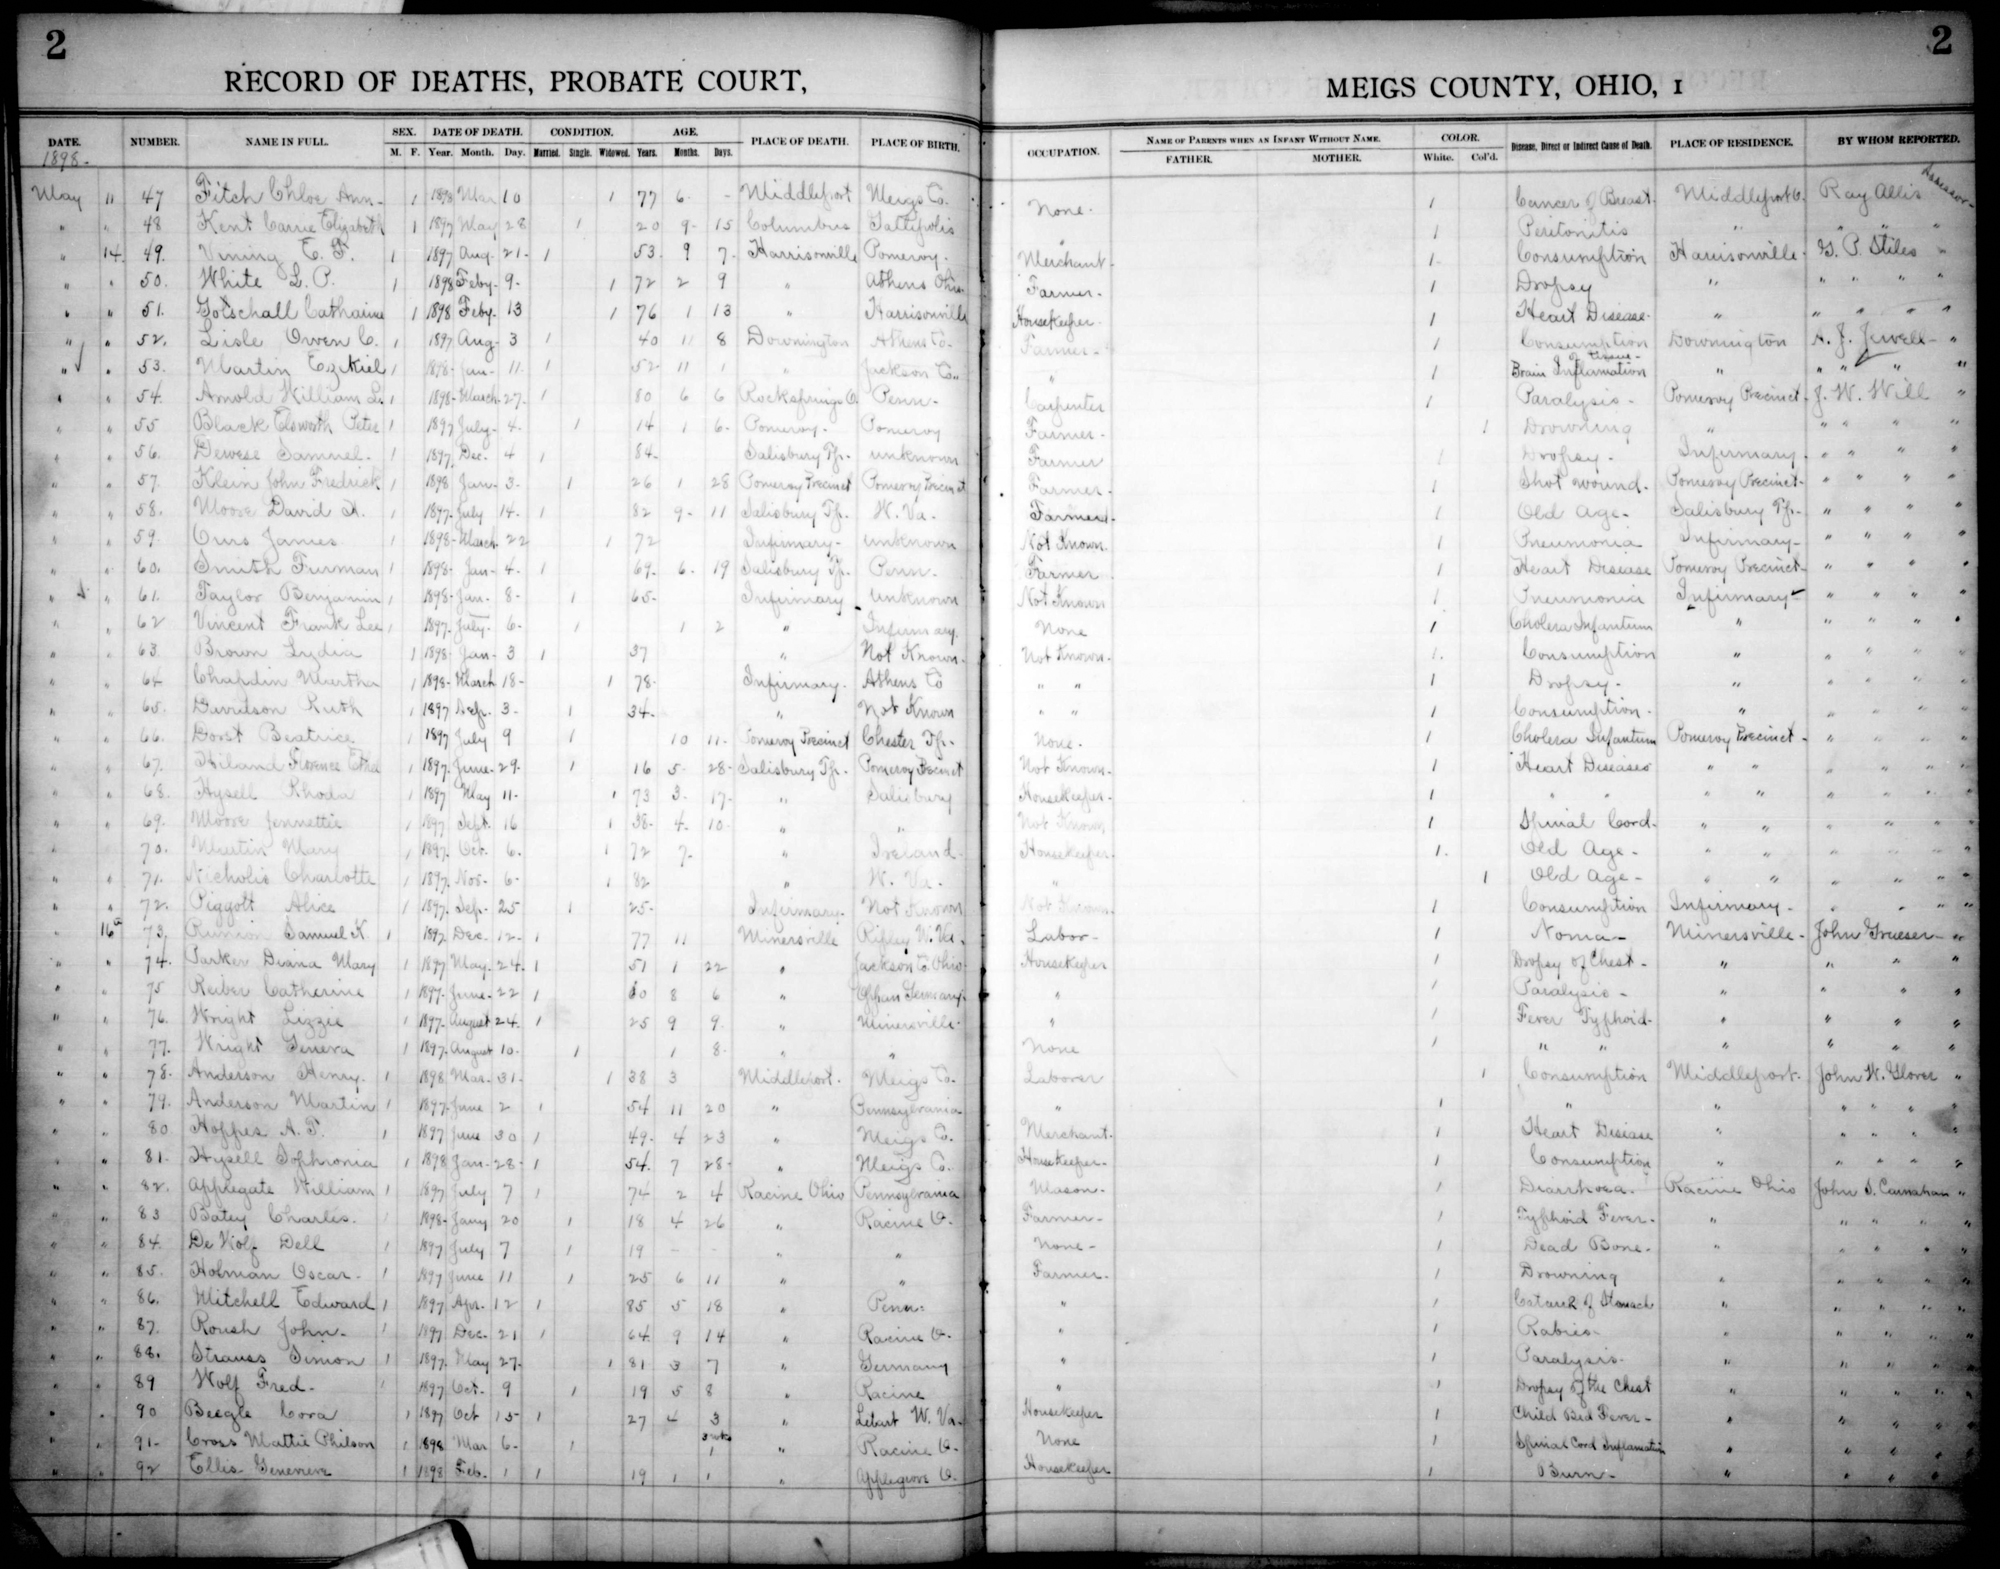 2
2
RECORD OF DEATHS, PROBATE COURT,
MEIGS COUNTY, OHIO, 1
DATE. NUMBER. NAME IN FULL. SEX. M. F. DATE OF DEATH. Year. Month. Day. CONDITION. Married. Single. Widowed. AGE. Years. Months. Days. PLACE OF DEATH. PLACE OF BIRTH. OCCUPATION. NAME OF PARENTS WHEN AN INFANT WITHOUT NAME. FATHER. MOTHER. COLOR. White. Col'd. Disease, Direct or Indirect Cause of Death. PLACE OF RESIDENCE. BY WHOM REPORTED.
1898-
May 11 47 Fitch Chloe Ann- 1 1898 Mar 10 1 77 6 - Middleport Meigs Co. None- 1 Cancer of Breast- Middleport O. Ray Allis Assessor-
" " 48 Kent Carrie Elizabeth 1 1897 May 28 1 20 9- 15 Columbus Gallipolis " 1 Peritonitis " " " "
" 14. 49. Vining E. F. 1 1897 Aug- 21- 1 53. 9 7- Harrisonville Pomeroy- Merchant- 1- Consumption Harrisonville- G. P. Stiles "
" " 50. White L. P. 1 1898 Feby- 9- 1 72 2 9 " Athens Ohio- Farmer- 1 Dropsy " " " " "
" " 51. Gotschall Catharine 1 1898 Feby- 13 1 76 1 13 " Harrisonville Housekeeper- 1 Heart Disease- " " " " "
" " 52. Lisle Owen C. 1 1897 Aug- 3 1 40 11 8 Downington Athens Co- Farmer- 1 Consumption Downington A. J. Jewell- "
" " 53. Martin Ezekiel 1 1898- Jan- 11- 1 52 11 1 " Jackson Co.. " 1 Brain Inflamation of tissue- " " " " "
" " 54. Arnold William L. 1 1898- March- 27- 1 80 6 6 Rocksprings O. Penn- Carpenter 1 Paralysis- Pomeroy Precinct- J. W. Will "
" " 55 Black Elsworth Peter 1 1897 July- 4- 1 14 1 6- Pomeroy- Pomeroy Farmer- 1 Drowning " " " " "
" " 56. Dewese Samuel- 1 1897. Dec- 4 1 84- Salisbury Tp- unknown Farmer 1 Dropsy- Infirmary- " " " "
" " 57. Klein John Fredrick 1 1898 Jan- 3- 1 26 1 28 Pomeroy Precinct Pomeroy Precinct Farmer- 1 Shot wound- Pomeroy Precinct- " " " "
" " 58. Moore David A. 1 1897- July 14- 1 82 9- 11 Salisbury Tp- W. Va- Farmer- 1 Old Age- Salisbury Tp- " " " "
" " 59. Curs James 1 1898- March- 22 1 72 Infirmary- unknown Not Known. 1 Pneumonia Infirmary- " " " "
" " 60. Smith Furman 1 1898- Jan- 4- 1 69. 6- 19 Salisbury Tp- Penn- Farmer 1 Heart Disease Pomeroy Precinct- " " " "
" " 61. Taylor Benjamin 1 1898- Jan- 8- 1 65- Infirmary unknown Not Known 1 Pneumonia Infirmary- " " " "
" " 62 Vincent Frank Lee 1 1897- July- 6- 1 1 2 " Infirmary. None 1 Cholera Infantum " " " " "
" " 63. Brown Lydia 1 1898- Jan- 3 1 37 " Not Known. Not Known- 1. Consumption " " " " "
" " 64 Chapdin Martha 1 1898- March 18- 1 78- Infirmary- Athens Co " " 1 Dropsy- " " " " "
" " 65. Davidson Ruth 1 1897 Sep- 3- 1 34- " Not Known " " 1 Consumption- " " " " "
" " 66. Dorst Beatrice 1 1897 July 9 1 10 11- Pomeroy Precinct Chester Tp- None- 1 Cholera Infantum Pomeroy Precinct- " " " "
" " 67. Hiland Florence Etha 1 1897- June- 29- 1 16 5- 28- Salisbury Tp- Pomeroy Precinct Not Known- 1 Heart Diseases " " " " " "
" " 68. Hysell Rhoda 1 1897 May 11- 1 73 3- 17- " Salisbury Housekeeper- 1 " " " " " " " "
" " 69. Moore Jennettie 1 1897 Sept- 16 1 38- 4- 10- " " Not Known 1 Spinal Cord- " " " " " "
" " 70. Martin Mary 1 1897- Oct- 6- 1 72 7- " Ireland- Housekeeper- 1. Old Age- " " " " " "
" " 71. Nicholis Charlotte 1 1897. Nov- 6- 1 82 " W. Va- " 1 Old Age- " " " " " "
" " 72. Piggott Alice 1 1897. Sep- 25 1 25- Infirmary- Not Known Not Known- 1 Consumption Infirmary- " " " "
" 16 73. Runion Samuel K. 1 1897 Dec- 12- 1 77 11 Minersville Ripley W. Va- Labor- 1 Noma- Minersville- John Grueser- "
" " 74. Parker Diana Mary 1 1897 May- 24- 1 51 1 22 " Jackson Co. Ohio Housekeeper 1 Dropsy of Chest- " " " "
" " 75 Reiber Catherine 1 1897- June- 22 1 60 8 6 " Germany- " 1 Paralysis- " " " "
" " 76. Wright Lizzie 1 1897- August 24- 1 25 9 9- " Minersville- " 1 Fever Typhoid- " " " "
" " 77. Wright Geneva 1 1897- August 10- 1 1 8- " " None 1 " " " " " "
" " 78. Anderson Henry. 1 1898 Mar- 31- 1 38 3 Middleport- Meigs Co. Laborer 1 Consumption Middleport- John W. Glover "
" " 79. Anderson Martin 1 1897- June 2 1 54 11 20 " Pennsylvania " 1 " " " " " "
" " 80 Hoppes A. T. 1 1897 June 30 1 49- 4 23 " Meigs Co. Merchant- 1 Heart Disease " " " " "
" " 81. Hysell Sophronia 1 1898 Jan- 28- 1 54. 7 28- " Meigs Co.. Housekeeper- 1 Consumption " " " " "
" " 82. Applegate William 1 1897 July 7 1 74 2 4 Racine Ohio Pennsylvania Mason- 1 Diarrhoea- Racine Ohio John S. Carnahan "
" " 83 Batey Charles. 1 1898- Jany 20 1 18 4 26 " Racine O. Farmer- 1 Typhoid Fever- " " " " "
" " 84. De Wolf Dell 1 1897 July 7 1 19 - - " " None- 1 Dead Bone- " " " " "
" " 85. Holman Oscar- 1 1897 June 11 1 25 6 11 " " Farmer- 1 Drowning " " " " "
" " 86. Mitchell Edward 1 1897 Apr- 12 1 85 5 18 " Penn- " 1 Catarrh of Stomach " " " " "
" " 87. Roush John- 1 1897 Dec- 21 1 64. 9 14 " Racine O. " 1 Rabies- " " " " "
" " 88. Strauss Simon 1 1897. May 27- 1 81 3 7 " Germany " 1 Paralysis- " " " " "
" " 89 Wolf Fred- 1 1897 Oct- 9 1 19 5 8 " Racine " 1 Dropsy of the Chest " " " " "
" " 90 Beegle Cora 1 1897 Oct 15- 1 27 4 3 " Letart W. Va- Housekeeper 1 Child Bed Fever- " " " " "
" " 91- Cross Mattie Philson 1 1898 Mar 6- 1 3 wks 1 " Racine O- None 1 Spinal Cord Inflamation " " " " "
" " 92 Ellis Genevieve 1 1898 Feb- 1 1 19 1 1 " Applegrove O. Housekeeper 1 Burn- " " " " "